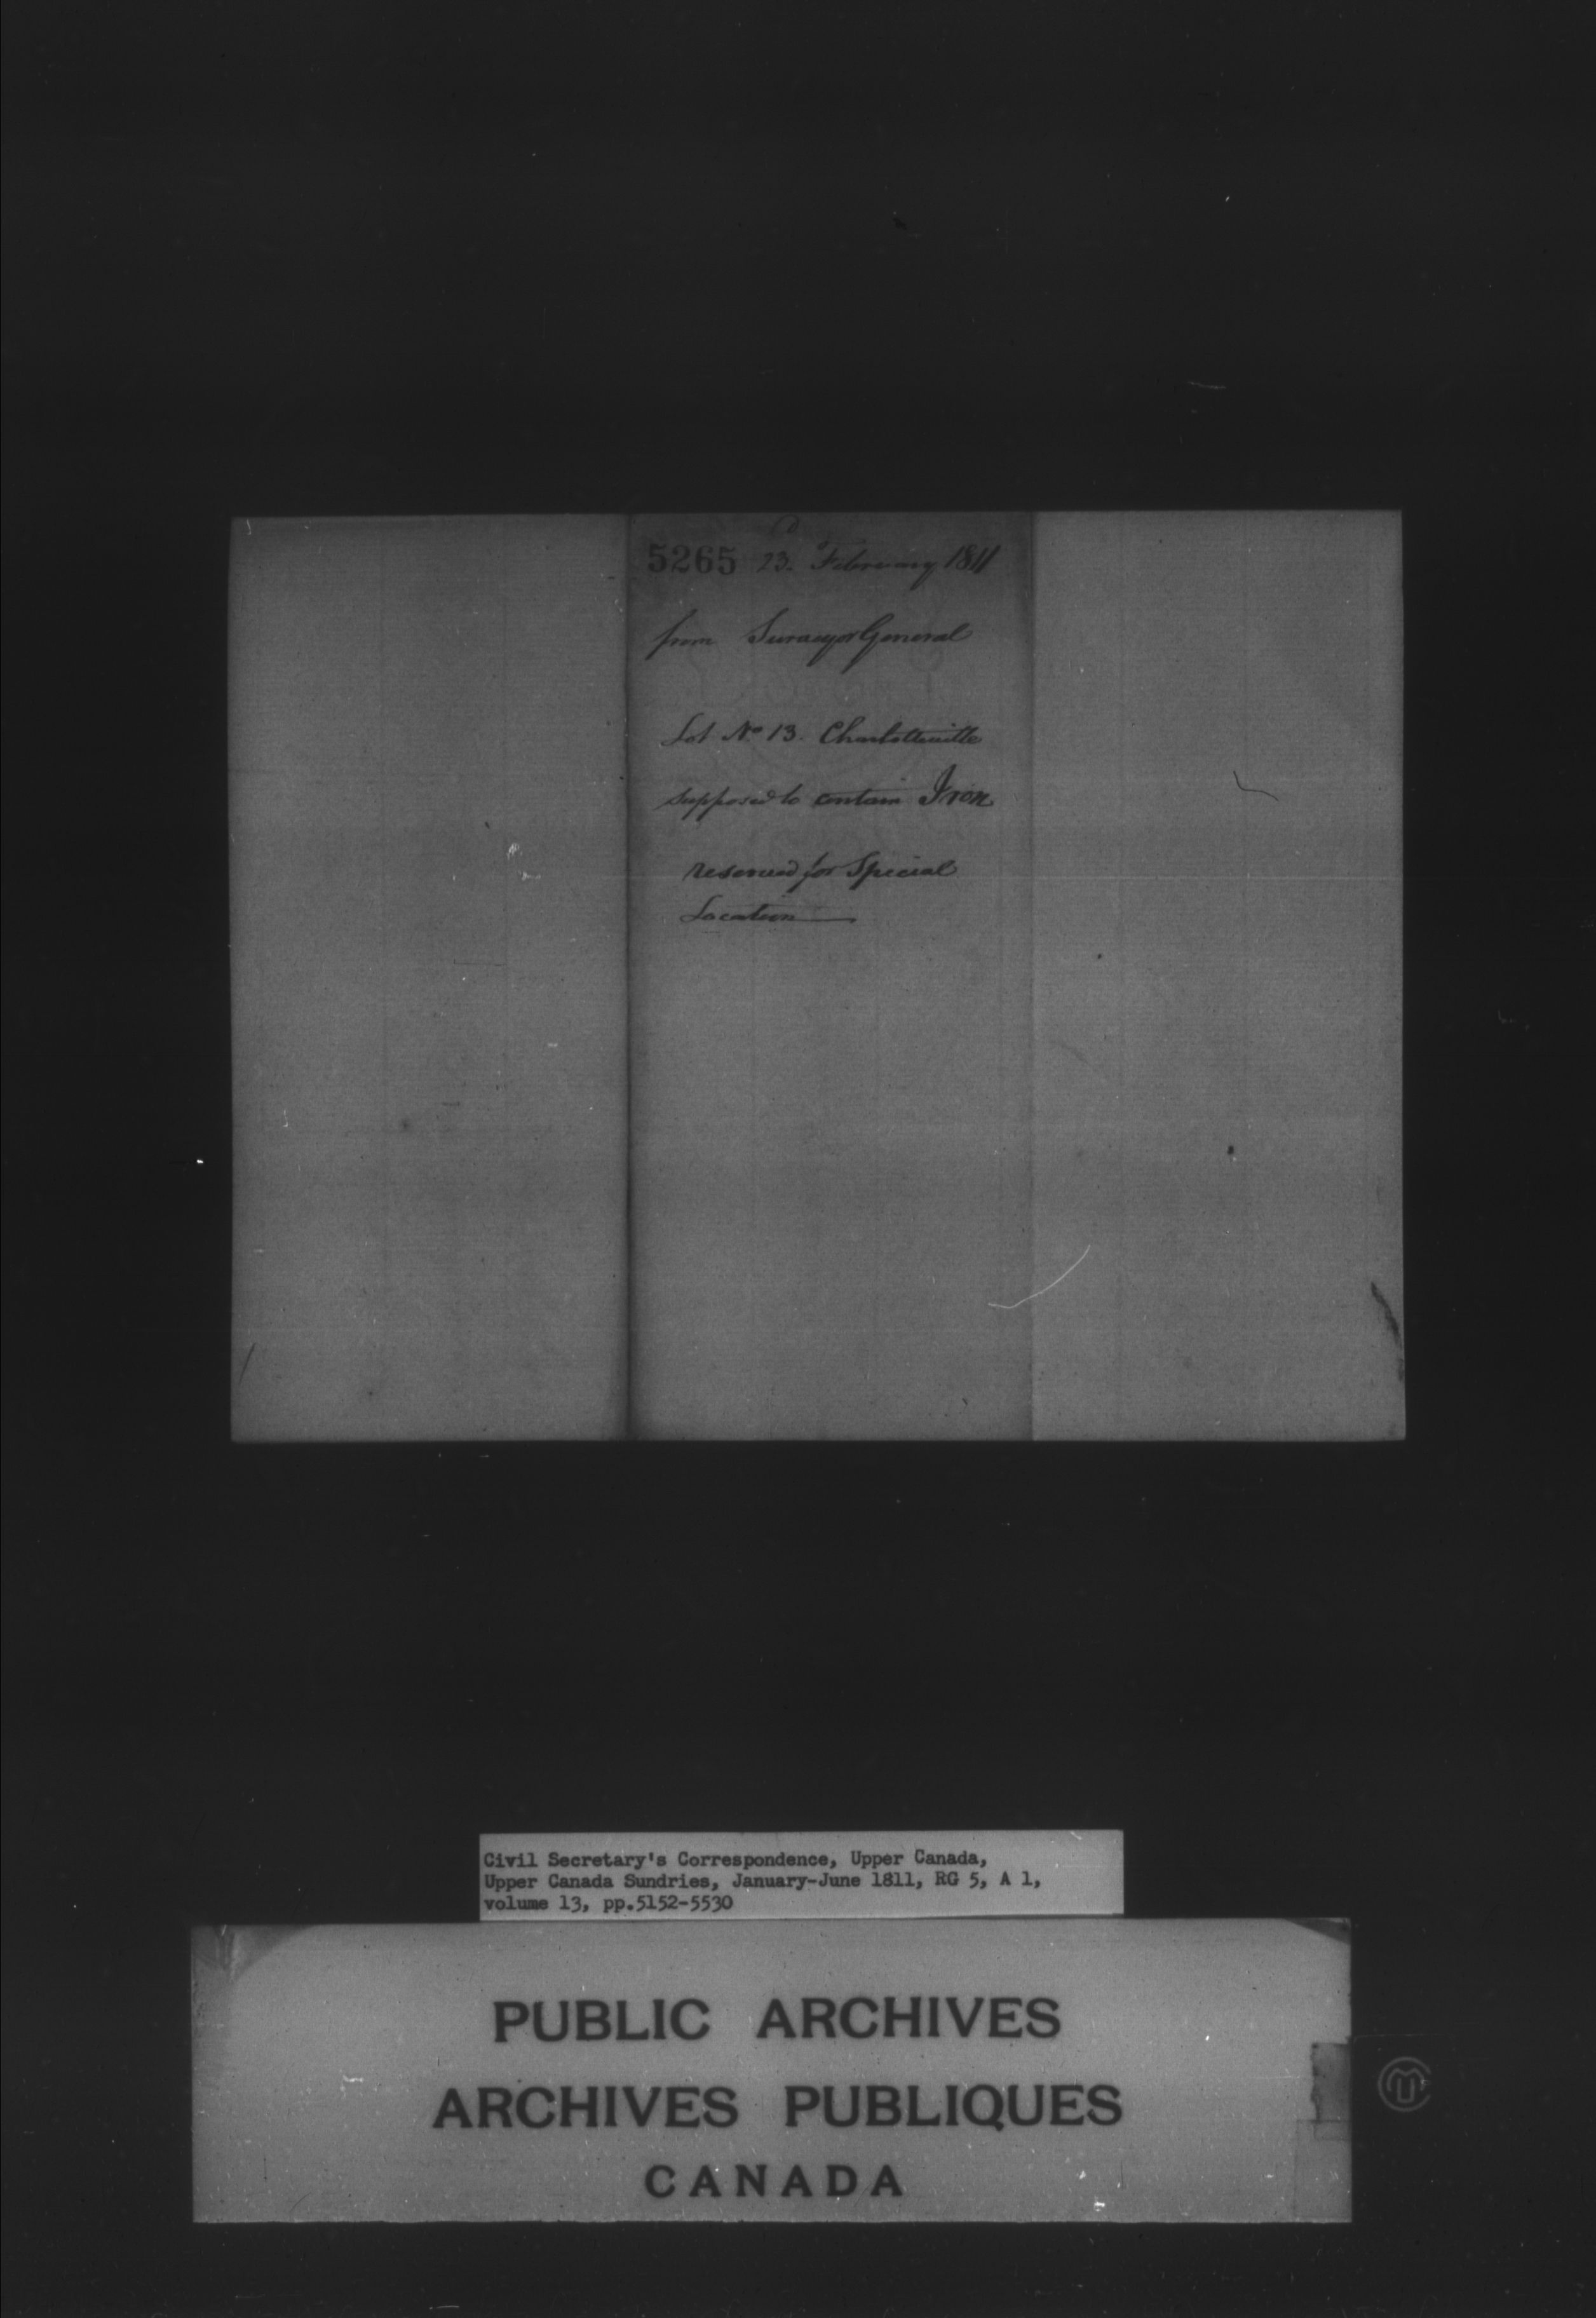 5265 23. February 1811
from Surveyor General
Lot No 13. Charlotteville
supposed to contain Iron
reserved for Special
Location
Civil Secretary's Correspondence, Upper Canada,
Upper Canada Sundries, January-June 1811, RG 5, A 1,
volume 13, pp.5152-5530
PUBLIC ARCHIVES
ARCHIVES PUBLIQUES
CANADA